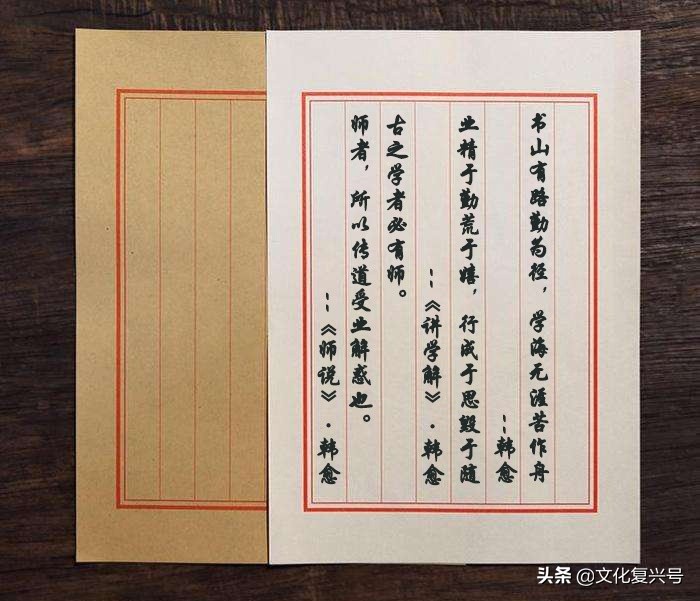 书山有路勤为径，学海无涯苦作舟
--韩愈
业精于勤荒于嬉，行成于思毁于随
--《讲学解》·韩愈
古之学者必有师。
师者，所以传道受业解惑也。
--《师说》·韩愈
头条 @文化复兴号